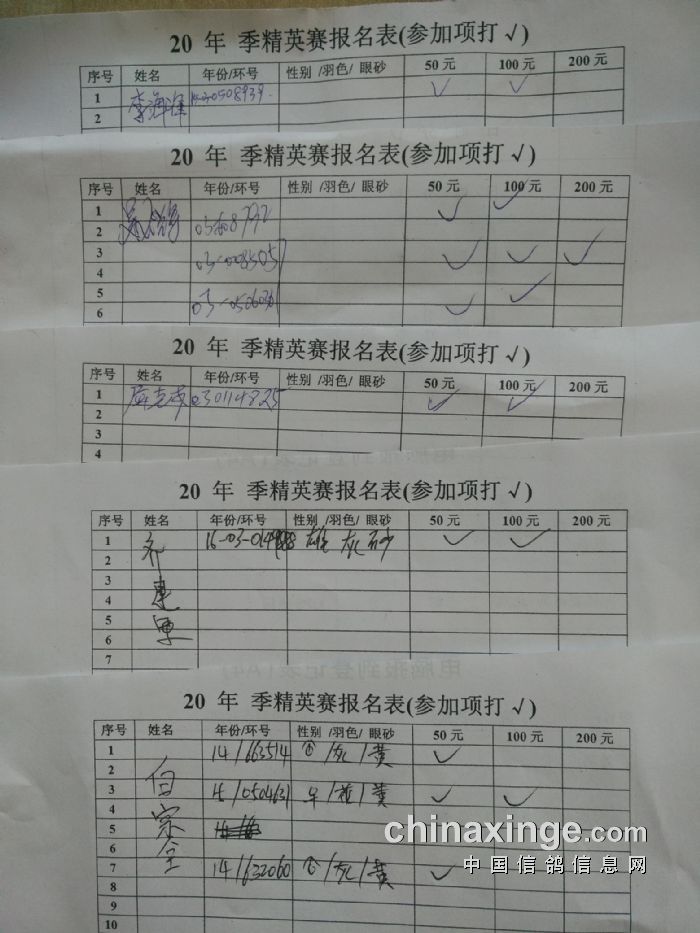 20 年 季精英赛报名表(参加项打√)
序号 姓名 年份/环号 性别 /羽色/ 眼砂 50 元 100 元 200 元
1 ✓ ✓
2
20 年 季精英赛报名表(参加项打√)
序号 姓名 年份/环号 性别 /羽色/ 眼砂 50 元 100 元 200 元
1 ✓ ✓
2
3 ✓ ✓ ✓
4
5 ✓ ✓
6
20 年 季精英赛报名表(参加项打√)
序号 姓名 年份/环号 性别 /羽色/ 眼砂 50 元 100 元 200 元
1 030114825 ✓ ✓
2
3
4
20 年 季精英赛报名表(参加项打√)
序号 姓名 年份/环号 性别 /羽色/ 眼砂 50 元 100 元 200 元
1 齐建军 雄 灰 砂 ✓ ✓
2
3
4
5
6
7
20 年 季精英赛报名表(参加项打√)
序号 姓名 年份/环号 性别 /羽色/ 眼砂 50 元 100 元 200 元
1 白宗全 14/663514 /灰/黄 ✓
2
3 15/0504631 /黄 ✓ ✓
4
5
6
7 14/632060 /灰/黄 ✓
8
9
10
chinaxinge.com
中国信鸽信息网